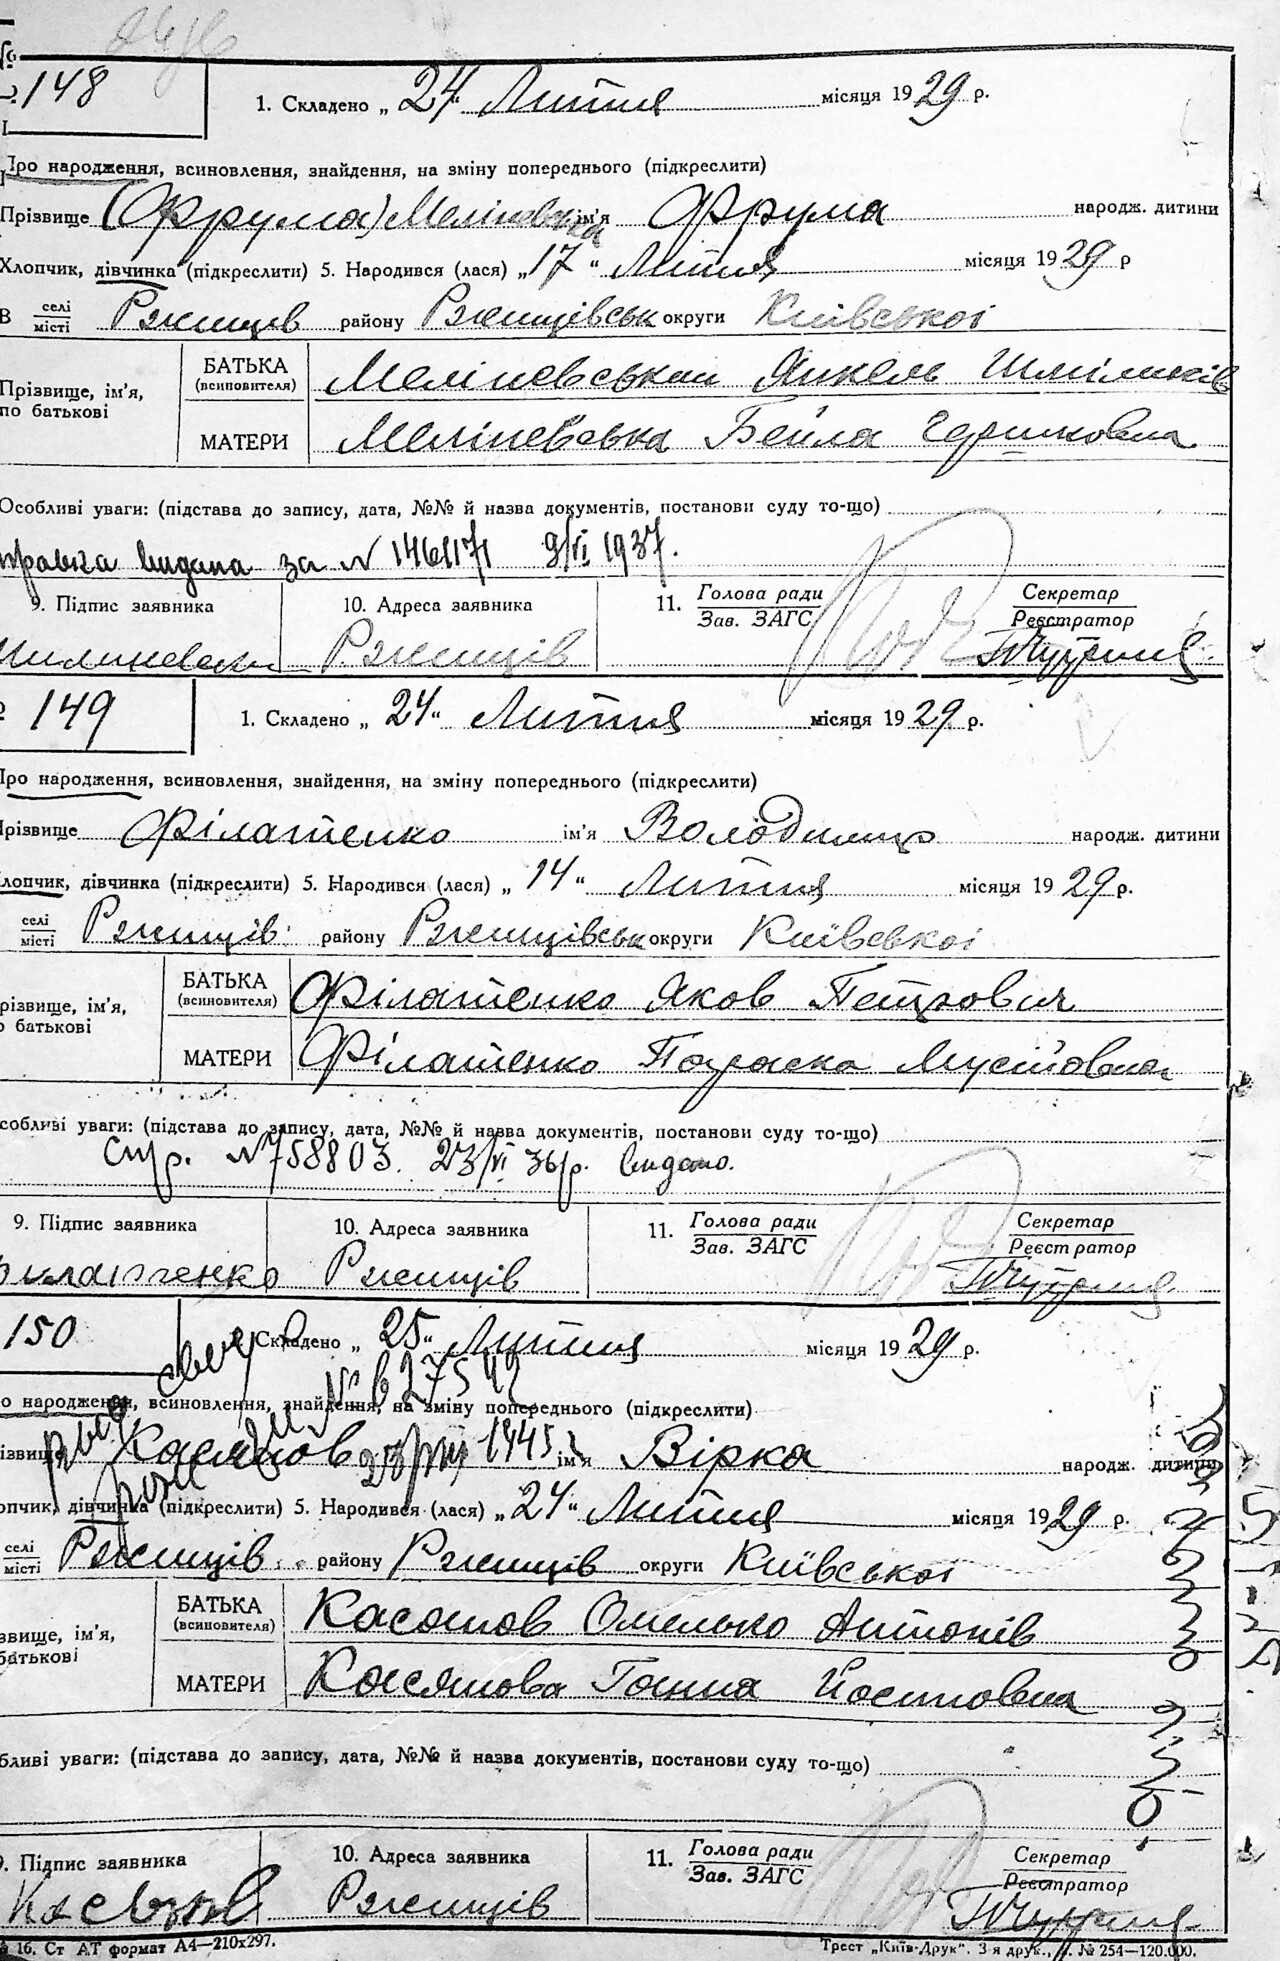 148
1. Складено „ 24 “ Лютня місяця 1929 р.
Про народження, всиновлення, знайдення, на зміну попереднього (підкреслити)
Прізвище (Фрума) Меліневська ім'я Фрума народж. дитини
Хлопчик, дівчинка (підкреслити) 5. Народився (лася) „ 17 “ Лютня місяця 1929 р
В селі місті Ржищев району Ржищівськ округи Київської
Прізвище, ім'я, по батькові
БАТЬКА (всиновителя) Меліневський Янкель Шмільків
МАТЕРИ Меліневська Бейла
Особливі уваги: (підстава до запису, дата, №№ й назва документів, постанови суду то-що)
видана за N 1461171 9/VI 1937.
9. Підпис заявника
10. Адреса заявника
11. Голова ради Зав. ЗАГС
Секретар Реєстратор
Ржищів
149
1. Складено „ 24 “ Лютня місяця 1929 р.
Про народження, всиновлення, знайдення, на зміну попереднього (підкреслити)
Прізвище Філатенко ім'я Володимир народж. дитини
Хлопчик, дівчинка (підкреслити) 5. Народився (лася) „ 14 “ Лютня місяця 1929 р.
селі місті Ржищів району Ржищівськ округи Київської
різвище, ім'я, о батькові
БАТЬКА (всиновителя) Філатенко Яков Петрович
МАТЕРИ Філатенко Параска
собливі уваги: (підстава до запису, дата, №№ й назва документів, постанови суду то-що)
Спр. N 758803. 23/VI 36 р. видано.
9. Підпис заявника
10. Адреса заявника
11. Голова ради Зав. ЗАГС
Секретар Реєстратор
Филатченко
Ржищів
150
Складено „ 25 “ Лютня місяця 1929 р.
о народження, всиновлення, знайдення, на зміну попереднього (підкреслити)
ізвище Касянов ім'я Вірка народж. дитини
опчик, дівчинка (підкреслити) 5. Народився (лася) „ 24 “ Лютня місяця 1929 р.
селі місті Ржищів району Ржищив округи Київської
звище, ім'я, батькові
БАТЬКА (всиновителя) Касянов Омелько Антонів
МАТЕРИ Касянова Ганна Йосиповна
бливі уваги: (підстава до запису, дата, №№ й назва документів, постанови суду то-що)
9. Підпис заявника
10. Адреса заявника
11. Голова ради Зав. ЗАГС
Секретар Реєстратор
Касьянов
Ржищів
16. Ст АТ формат А4—210х297.
Трест „Київ-Друк“. 3 я друк., № 254—120.000.